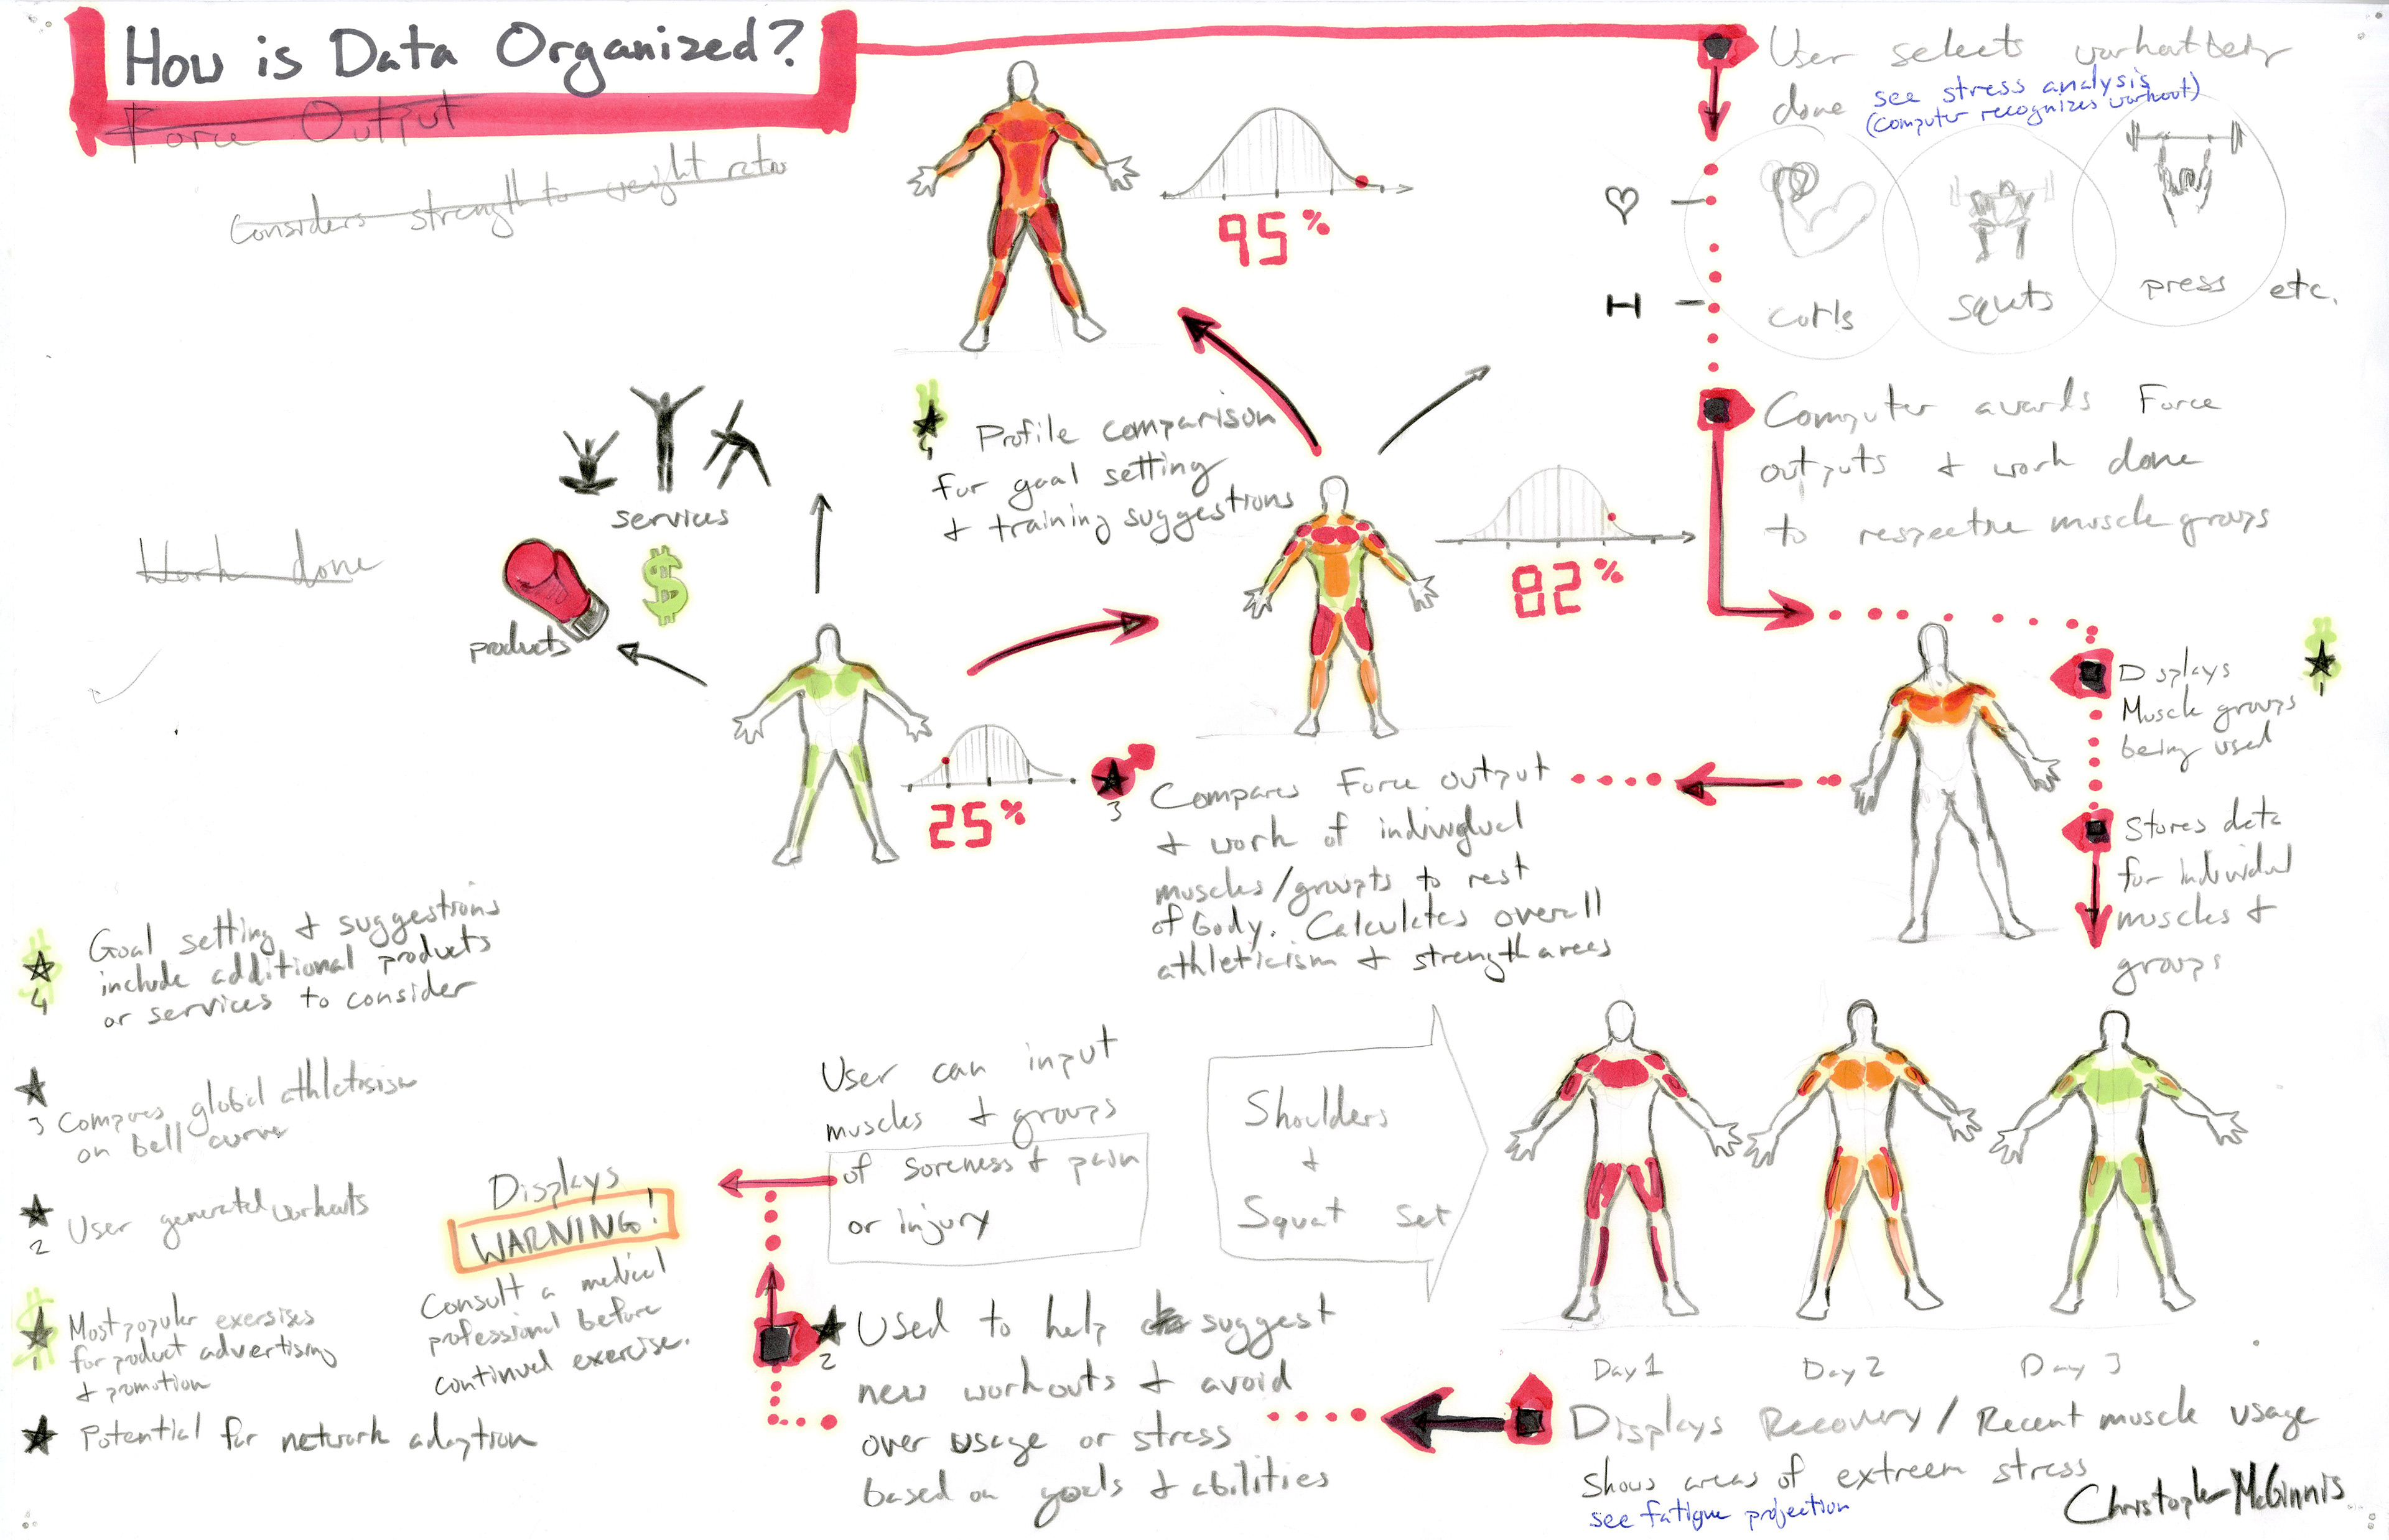 How is Data Organized?
Force Output
Considers strength to weight ratio
Work done
User selects workout being
done see stress analysis
(computer recognizes workout)
curls
squts
press
etc.
95%
Computer awards Force
outputs + work done
to respective muscle groups
Profile comparison
for goal setting
+ training suggestions
4
82%
services
$
products
25%
Displays
Muscle groups
being used
1
Stores data
for individual
muscles +
groups
3
Compares Force output
+ work of individual
muscles/groupts to rest
of body. Calculates overall
athleticism + strength areas
Shoulders
+
Squat set
Day 1
Day 2
Day 3
Displays Recovery/Recent muscle usage
Shows areas of extreem stress
see fatigue projection
2
Used to help suggest
new workouts + avoid
over usage or stress
based on goals + abilities
User can input
muscles + groups
of soreness + pain
or injury
Displays
WARNING!
Consult a medical
professional before
continued exercise.
4
Goal setting + suggestions
include additional products
or services to consider
3
Compares global athletisism
on bell curve
2
User generated workouts
1
Most popular exersises
for product advertising
+ promotion
Potential for network adaption
Christopher McGinnis